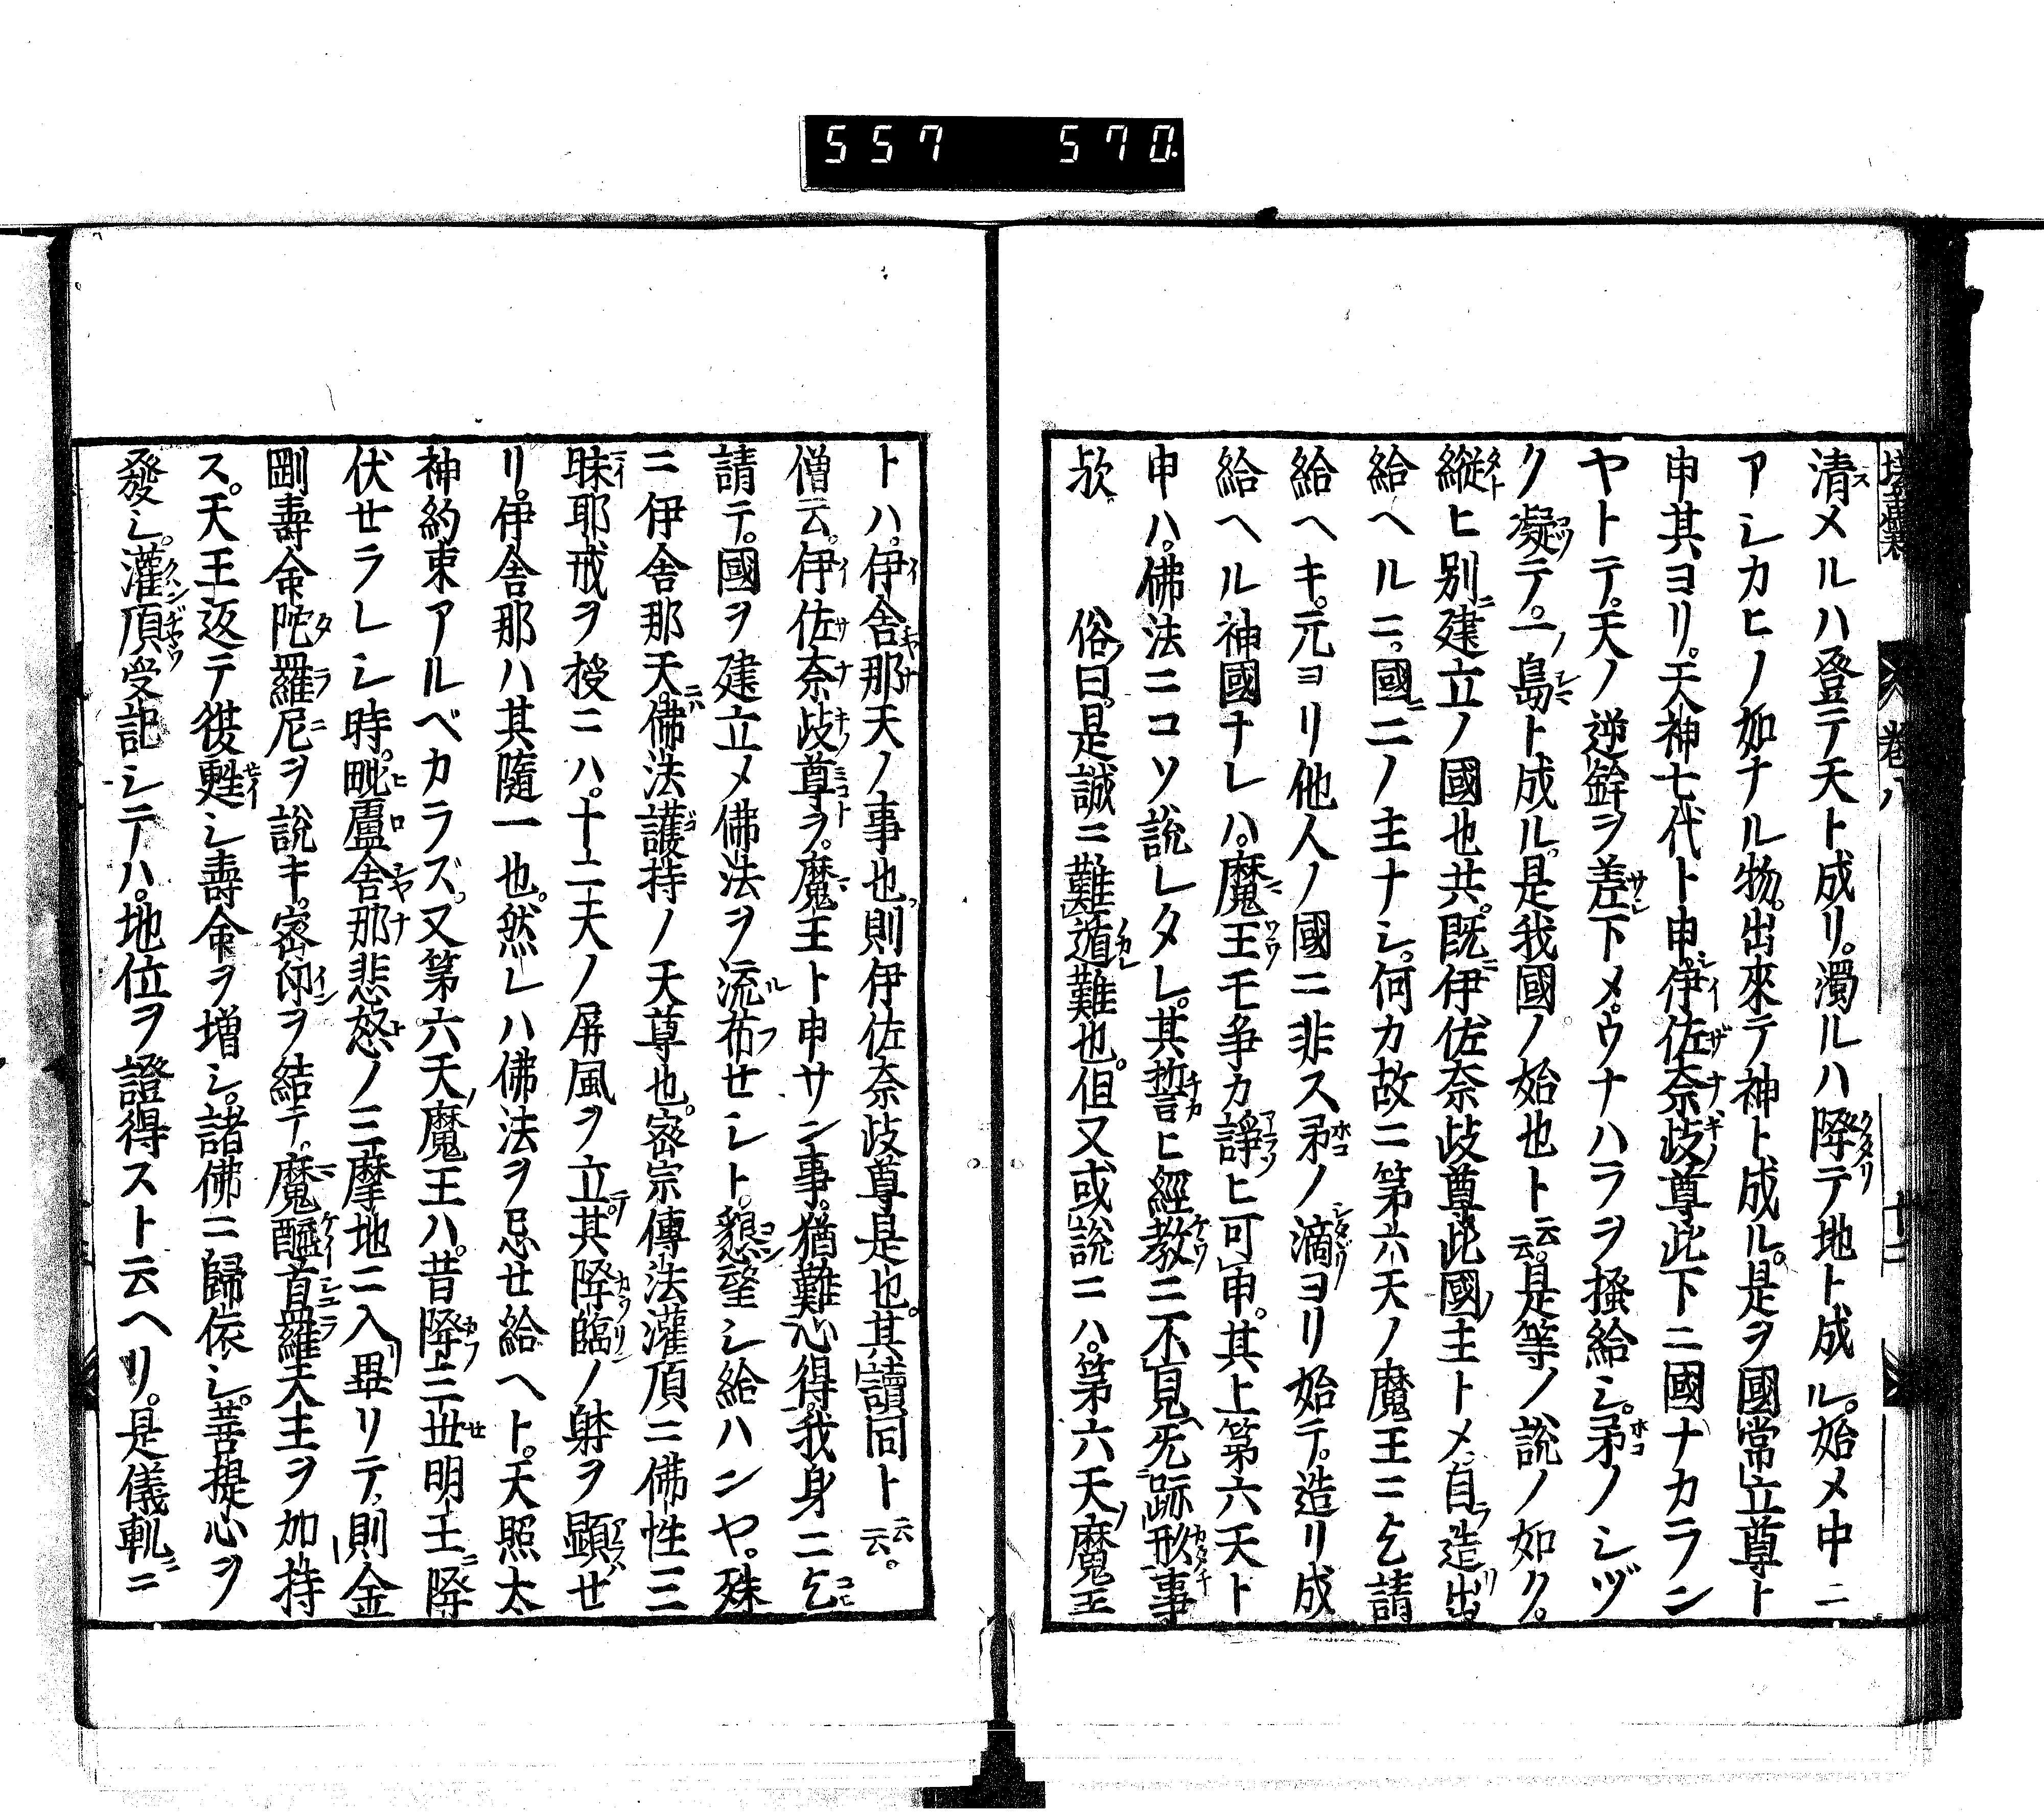 557 570.
卷八
十二
清メルハ登テ天ト成リ。濁ルハ降テ地ト成ル。始メ中ニ
アシカヒノ如ナル物。出來テ神ト成ル。是ヲ國常立尊ト
申其ヨリ。天神七代ト申。伊佐奈歧尊此下ニ國ナカラン
ヤトテ。天ノ逆鉾ヲ差下メ。ウナハラヲ搔給シ。矛ノシヅ
ク凝テ。一島ト成ル。是我國ノ始也ト云云。是等ノ說ノ如ク。
縱ヒ別建立ノ國也共。既ニ伊佐奈歧尊此國主トメ。自造出
給ヘルニ。國ニ二ノ主ナシ。何カ故ニ第六天ノ魔王ニ乞請
給ヘキ。元ヨリ他人ノ國ニ非ス矛ノ滴ヨリ始テ。造リ成
給ヘル神國ナレハ。魔王モ爭カ諍ヒ可申。其上第六天ト
申ハ。佛法ニコソ說レタレ。其誓ヒ經敎ニ不見。旡跡形事
歟 俗曰。是誠ニ難遁難也。但又或說ニハ。第六天魔王
トハ。伊舍那天ノ事也。則伊佐奈歧尊是也。其讀同ト云云。
僧云。伊佐奈歧尊ヲ。魔王ト申サン事。猶難心得。我身ニ乞
請テ。國ヲ建立メ佛法ヲ流布セシト。懇望シ給ハンヤ。殊
ニ伊舍那天。佛法護持ノ天尊也。密宗傳法灌頂ニ佛性三
昧耶戒ヲ授ニハ。十二天ノ屏風ヲ立。其降臨ノ躰ヲ顯セ
リ。伊舍那ハ其隨一也。然レハ佛法ヲ忌世給ヘト。天照太
神約束アルベカラズ。又第六天魔王ハ。昔降三世明王ニ降
伏セラレシ時。毗盧舍那悲怒ノ三摩地ニ入畢リテ。則金
剛壽命陀羅尼ヲ說キ。密印ヲ結テ。魔醯首羅天主ヲ加持
ス。天王返テ復甦シ壽命ヲ增シ。諸佛ニ歸依シ。菩提心ヲ
發シ。灌頂受記シテハ。地位ヲ證得スト云ヘリ。是儀軌ニ